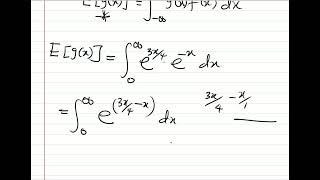 E[g(x)] = ∫_{-∞} g(x) f(x) dx
E[g(x)] = ∫_0^∞ e^{3x/4} e^{-x} dx
= ∫_0^∞ e^{(3x/4 - x)} dx    3x/4 - x/1